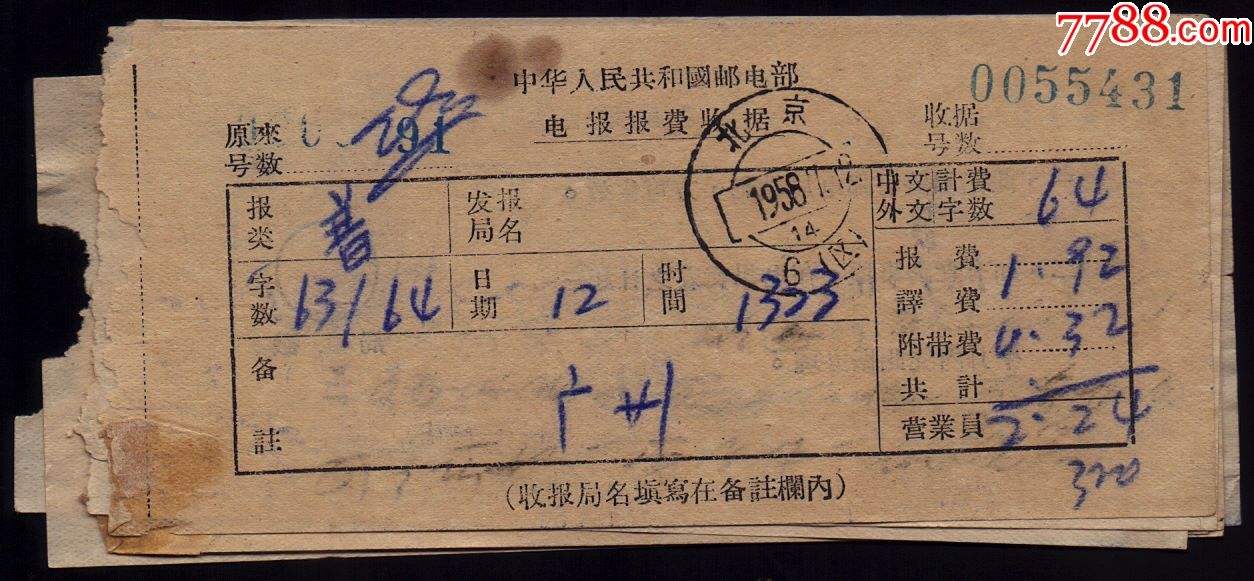 7788.com
中华人民共和國邮电部
0055431
电报报費收据
收据
号数
原來
号数
91
北京
1958.7.12
14
6(区)
报类 普 发报局名
中文計費 64
外文字数
字数 63/64 日期 12 时間 1333
报費 1.92
譯費
附带費 0.32
共計
备註 广州
营業員 2.24
320
(收报局名填寫在备註欄內)